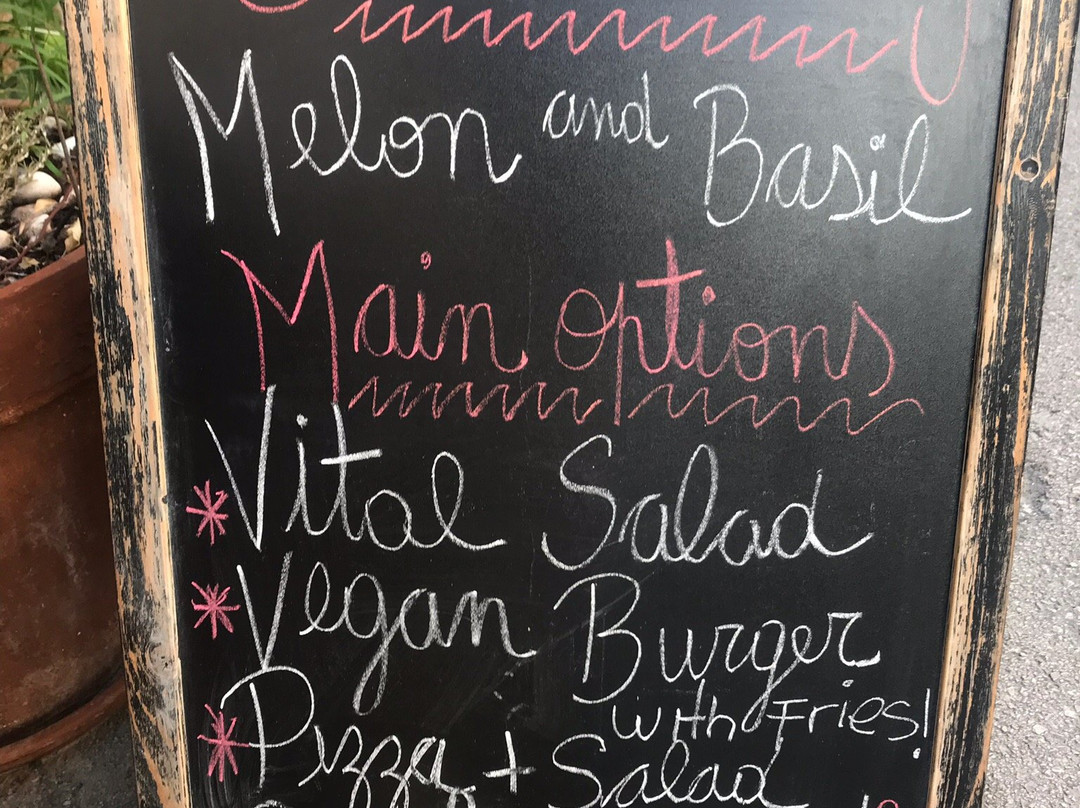 Melon and Basil
Main options
* Vital Salad
* Vegan Burger
with Fries!
* Pizza + Salad